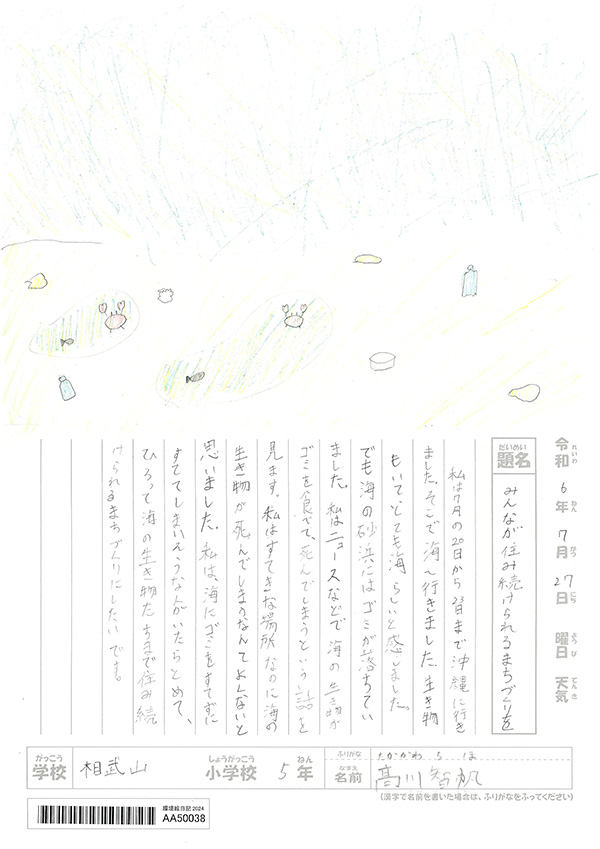 令和6年7月27日 曜日 天気
れいわ ねん がつ にち ようび てんき
だいめい
題名
みんなが住み続けられるまちづくりを
私は7月の20日から23日まで沖縄に行き
ました。そこで海へ行きました。生き物
もいて、とても海らしいと感しました。
でも海の砂浜にはゴミが落ちてい
ました。私はニュースなどで海の生き物が
ゴミを食べて、死んでしまうという話を
見ます。私はすてきな場所なのに海の
生き物が死んでしまうなんてよくないと
思いました。私は、海にゴミをすてずに
すててしまいそうな人がいたらとめて、
ひろって海の生き物たちまで住み続
けられるまちづくりにしたいです。
がっこう
学校
相武山
しょうがっこう
小学校
5年
ねん
ふりがな
たかがわ ちほ
なまえ
名前
高川智帆
(漢字で名前を書いた場合は、ふりがなをふってください)
環境絵日記2024
AA50038